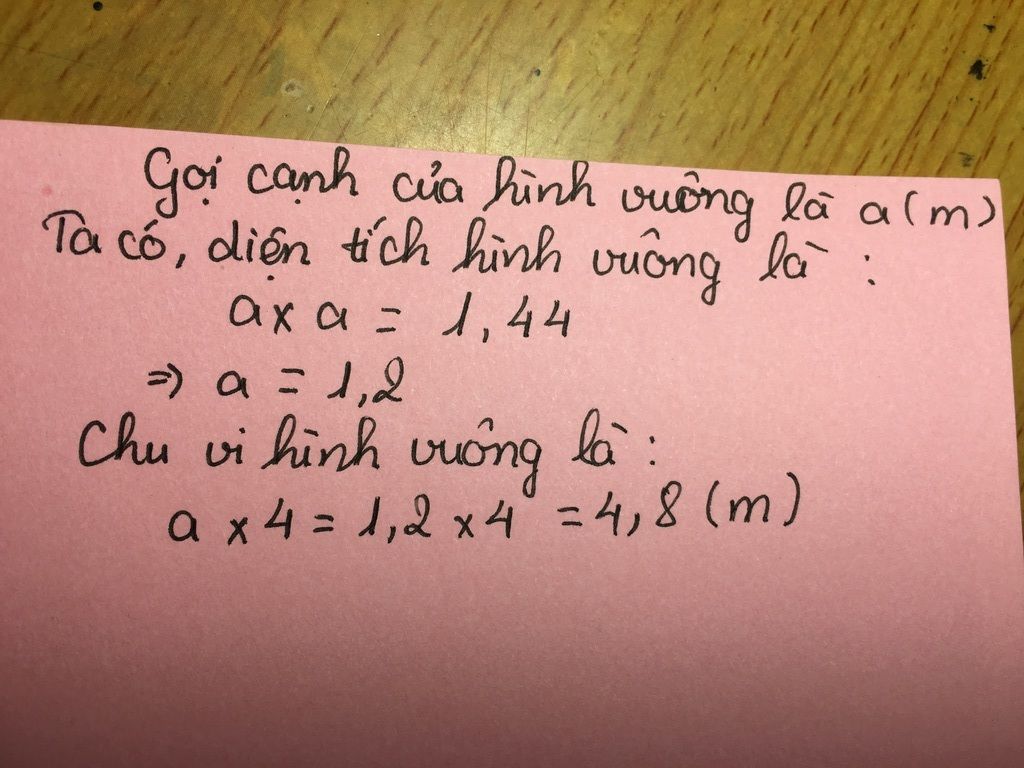 Gọi cạnh của hình vuông là a (m)
Ta có, diện tích hình vuông là :
a x a = 1,44
=> a = 1,2
Chu vi hình vuông là :
a x 4 = 1,2 x 4 = 4,8 (m)